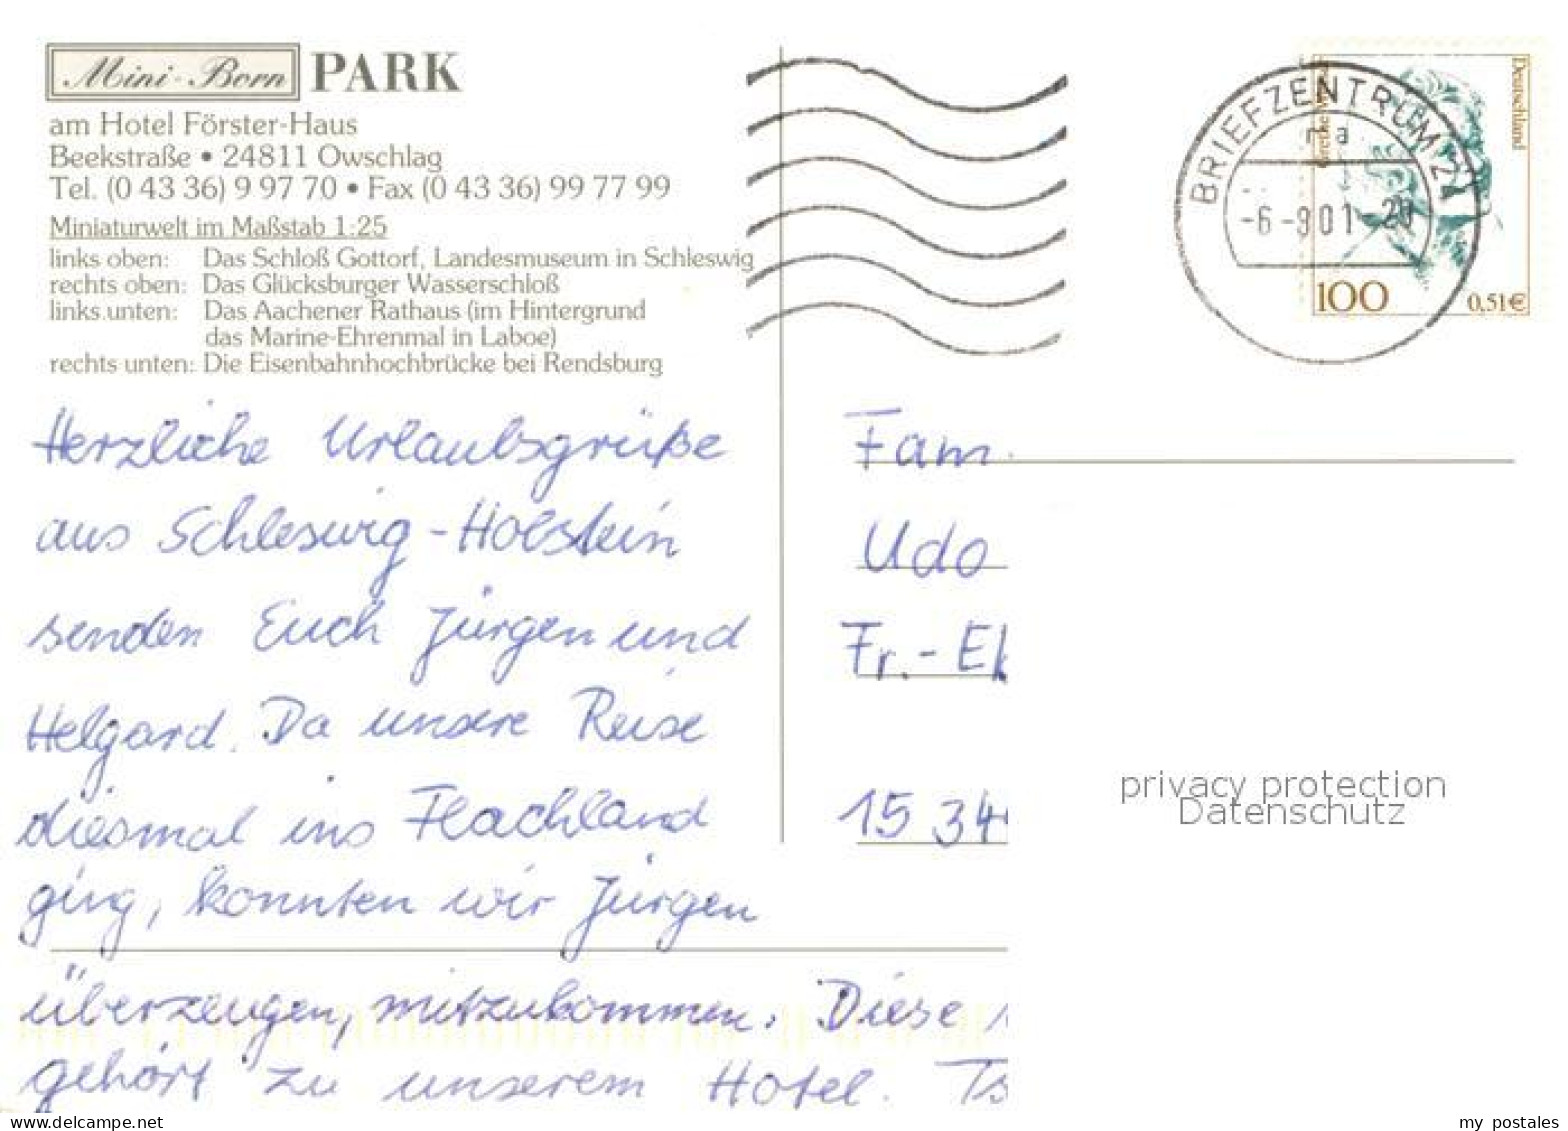 Mini-Born PARK
am Hotel Förster-Haus
Beekstraße • 24811 Owschlag
Tel. (0 43 36) 9 97 70 • Fax (0 43 36) 99 77 99
Miniaturwelt im Maßstab 1:25
links oben: Das Schloß Gottorf, Landesmuseum in Schleswig
rechts oben: Das Glücksburger Wasserschloß
links unten: Das Aachener Rathaus (im Hintergrund
das Marine-Ehrenmal in Laboe)
rechts unten: Die Eisenbahnhochbrücke bei Rendsburg
Herzliche Urlaubsgrüße
aus Schleswig-Holstein
senden Euch Jürgen und
Helgard. Da unsere Reise
diesmal ins Flachland
ging, konnten wir Jürgen
überzeugen, mitzukommen. Diese
gehört zu unserem Hotel. Ts
BRIEFZENTRUM 21
na
-6-901-20
Deutschland
100
0,51€
Fam.
Udo
Fr.-Ek
15 34
privacy protection
Datenschutz
my postales